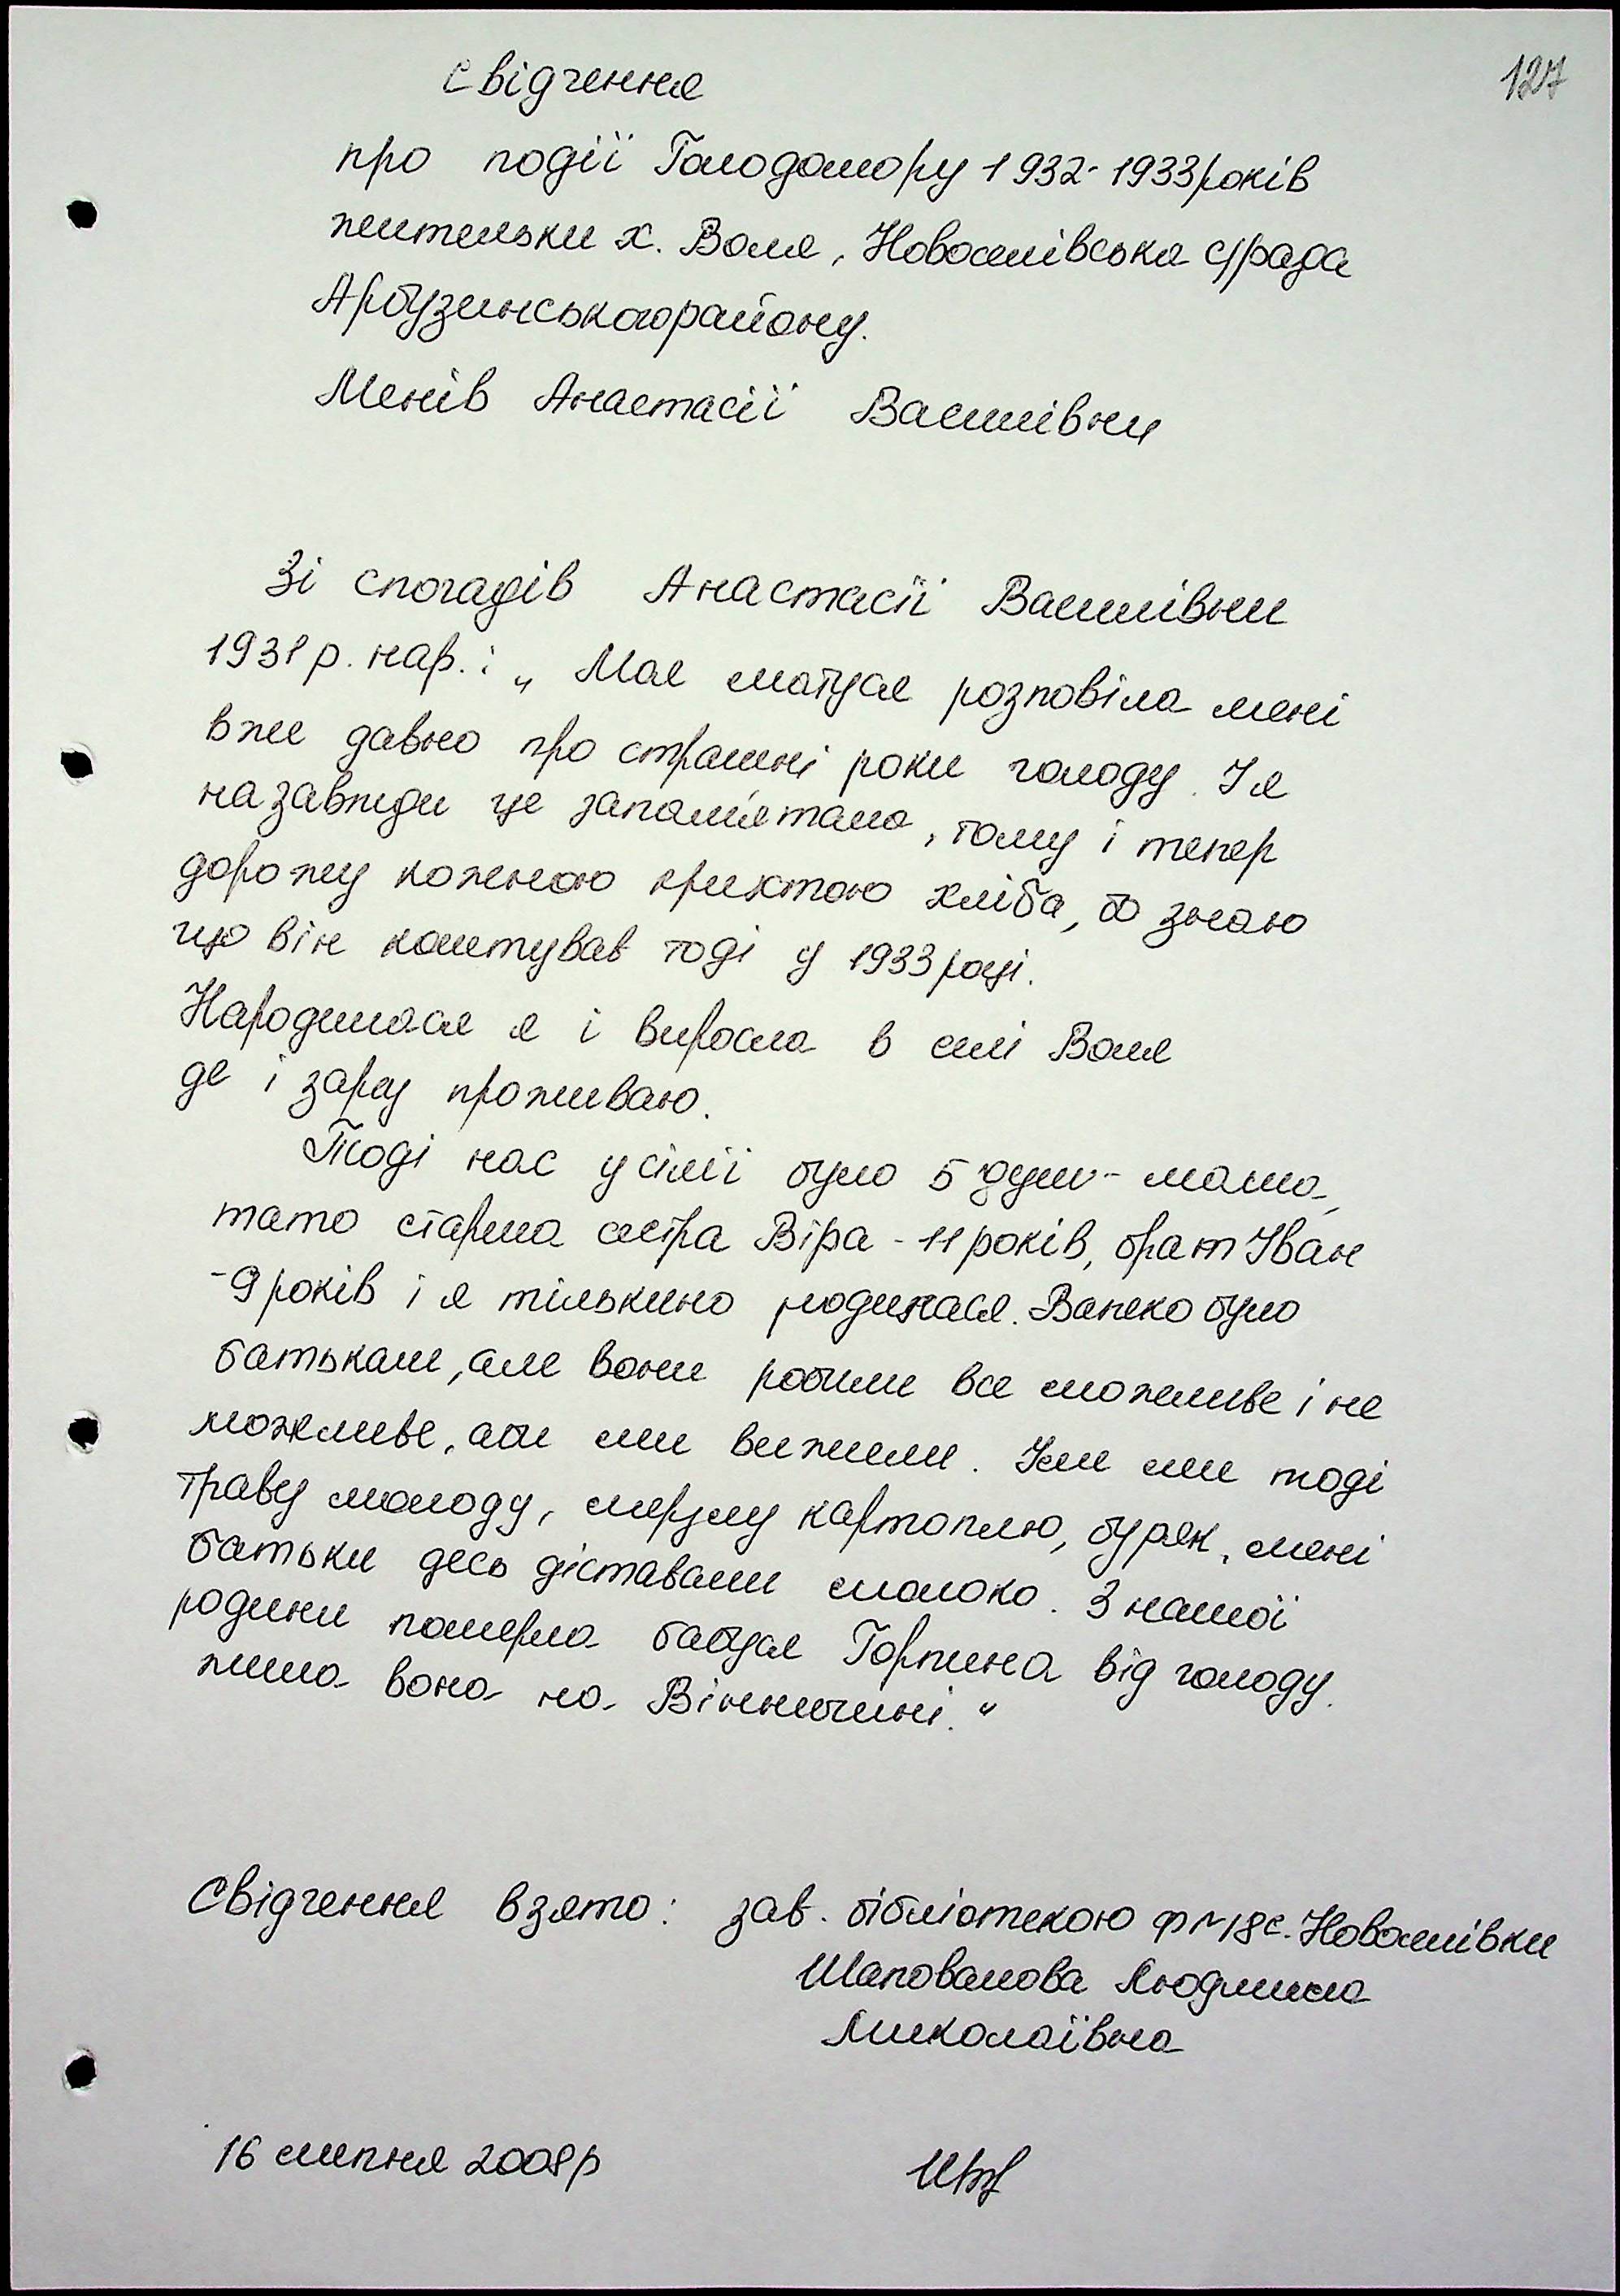 127
Свідчення
про події Голодомору 1932-1933 років
жительки х. Воля, Новоселівська с/рада
Арбузинського району.
Менів Анастасії Василівни
Зі спогадів Анастасії Василівни
1931 р. нар.: „ Моя матуся розповіла мені
вже давно про страшні роки голоду. І я
назавжди це запам'ятала, тому і тепер
дорожу кожною крихтою хліба, бо знаю
що він коштував тоді у 1933 році.
Народилася я і виросла в селі Воля
де і зараз проживаю.
Тоді нас у сім'ї було 5 душ - мама,
тато старша сестра Віра - 11 років, брат Іван
- 9 років і я тількино родилася. Важко було
батькам, але вони робили все можливе і не
можливе, аби ми вижили. Їли ми тоді
траву молоду, мерзлу картоплю, буряк, мені
батьки десь діставали молоко. З нашої
родини померла бабуся Горпина від голоду.
жила вона на Вінничині."
Свідчення взято: зав. бібліотекою ф №18 с. Новоселівки
Шаповалова Людмила
Миколаївна
16 липня 2008р